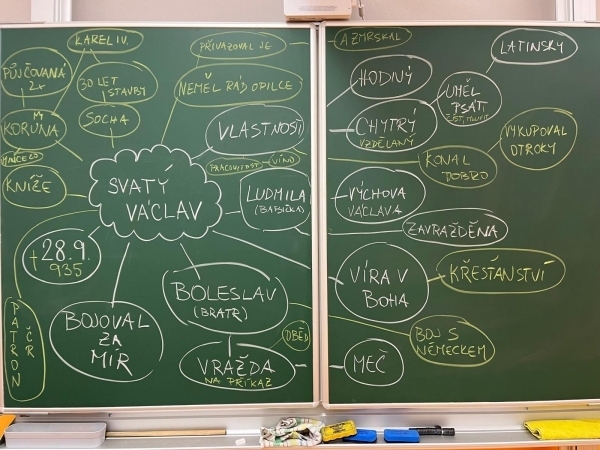 KAREL IV.
PŮJČOVANÁ
ZA
30 LET
STAVBY
KORUNA
SOCHA
KNÍŽE
† 28.9.
935
PATRON
ČR
SVATÝ
VÁCLAV
BOJOVAL
ZA
MÍR
PŘIVAZOVAL JE
A ZMRSKAL
NEMĚL RÁD OPILCE
VLASTNOSTI
PRACOVITOST
VÍNO
LUDMILA
(BABIČKA)
BOLESLAV
(BRATR)
OBĚD
VRAŽDA
NA PŘÍKAZ
MEČ
HODNÝ
CHYTRÝ
VZDĚLANÝ
UMĚL
PSÁT
LATINSKY
KONAL
DOBRO
VYKUPOVAL
OTROKY
VÝCHOVA
VÁCLAVA
ZAVRAŽDĚNA
VÍRA V
BOHA
KŘESŤANSTVÍ
BOJ S
NĚMECKEM